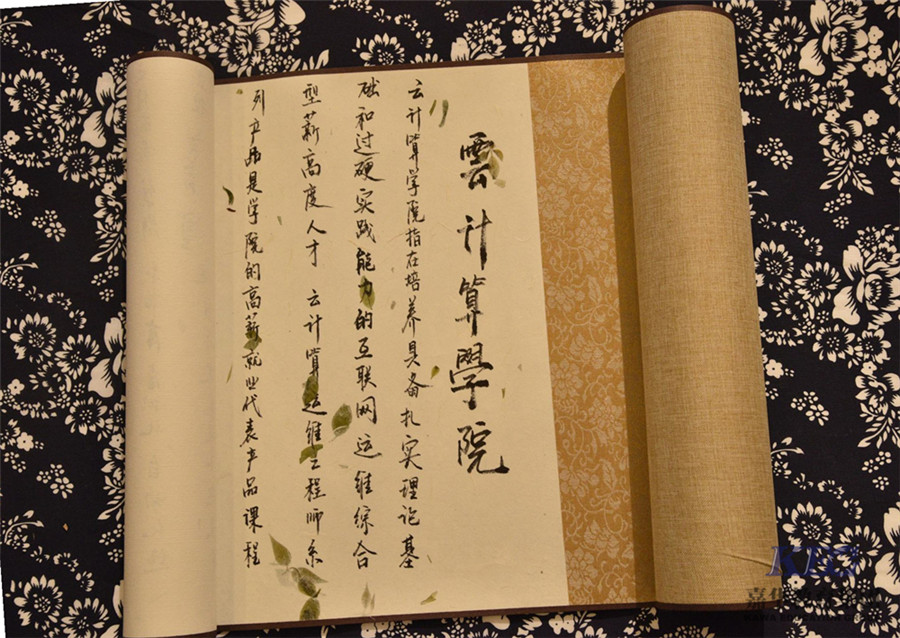 雲计算學院
云计算学院指在培养具备扎实理论基
础和过硬实践能力的互联网运维综合
型薪高度人才 云计算运维工程师系
列产品是学院的高薪就业代表产品课程